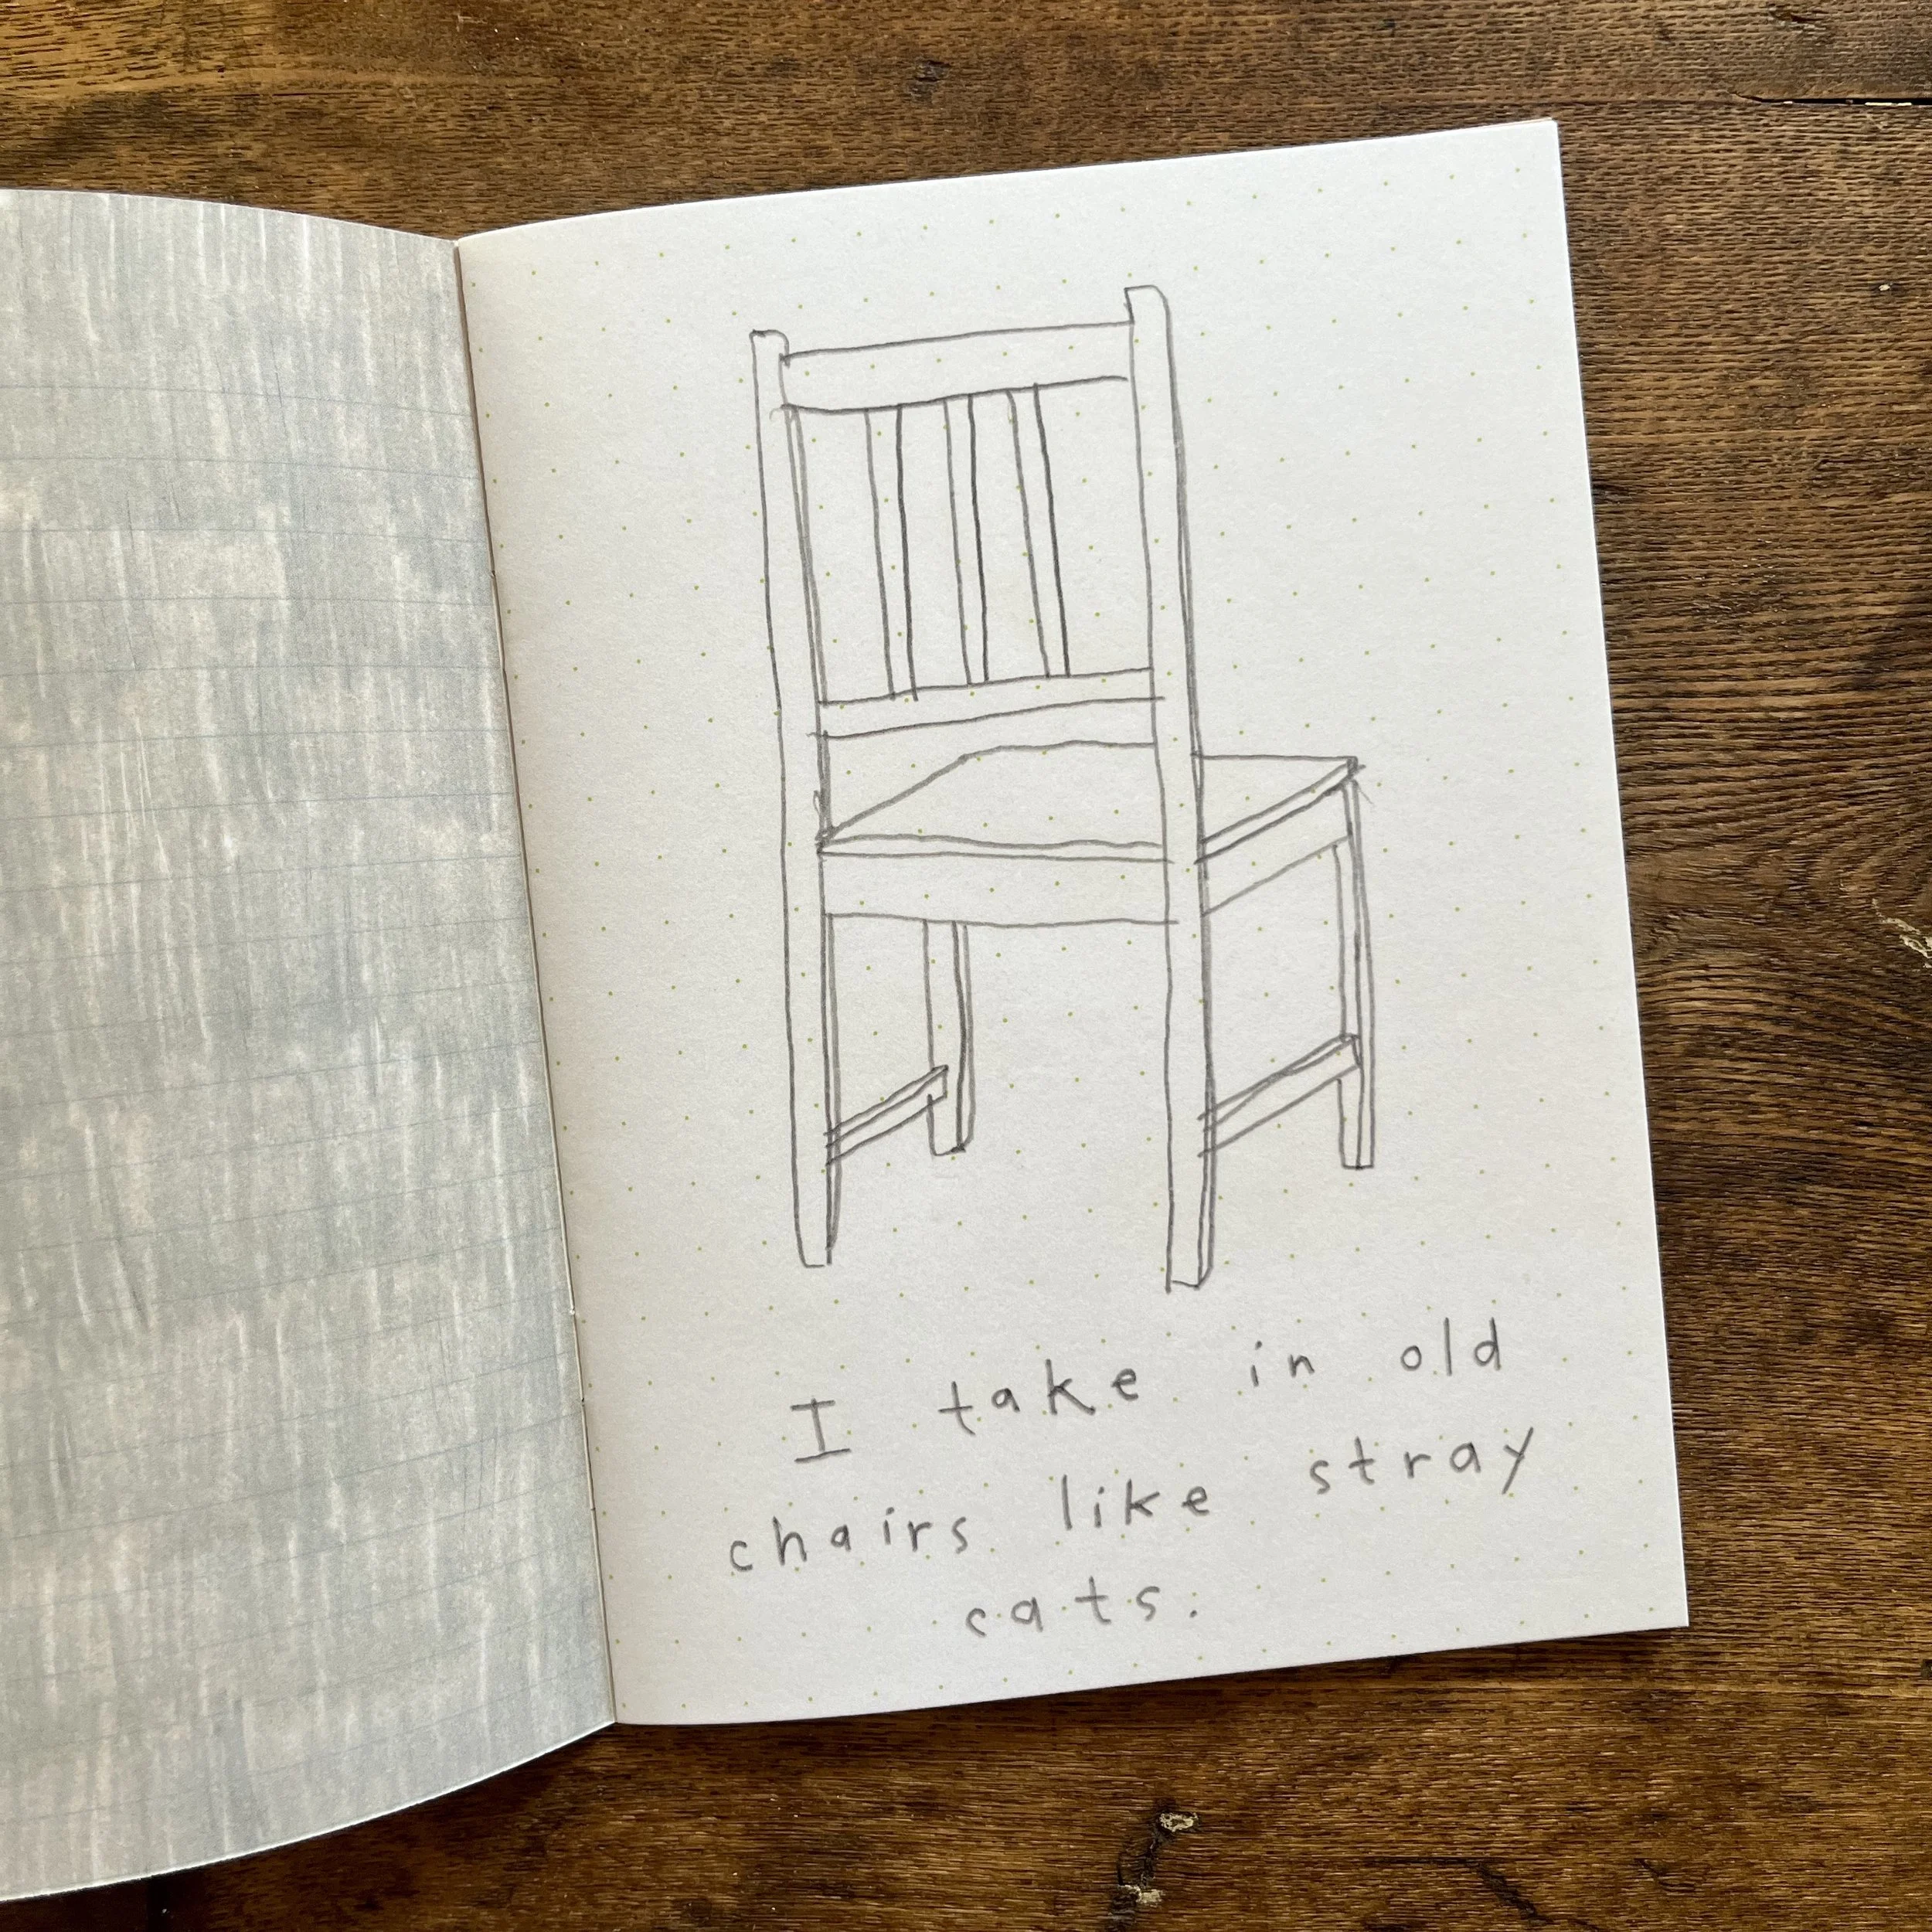 I take in old
chairs like stray
cats.